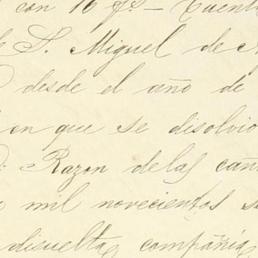 con 16 f.s - Cuent
S. Miguel de
desde el año de
en que se disolvio
Razon delas can
mil novecientos s
disuelta compañia